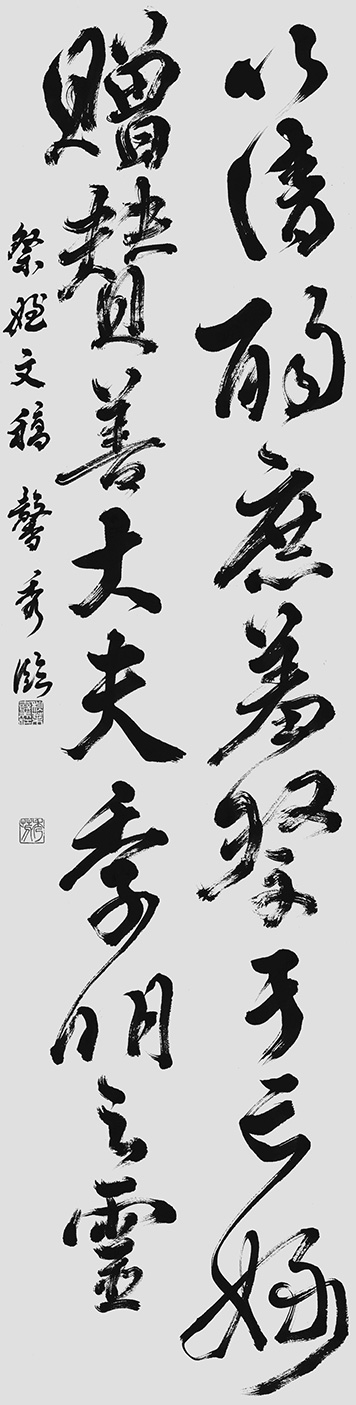 以清酌庶羞祭于亡姪
贈贊善大夫季明之靈
祭姪文稿 馨秀臨